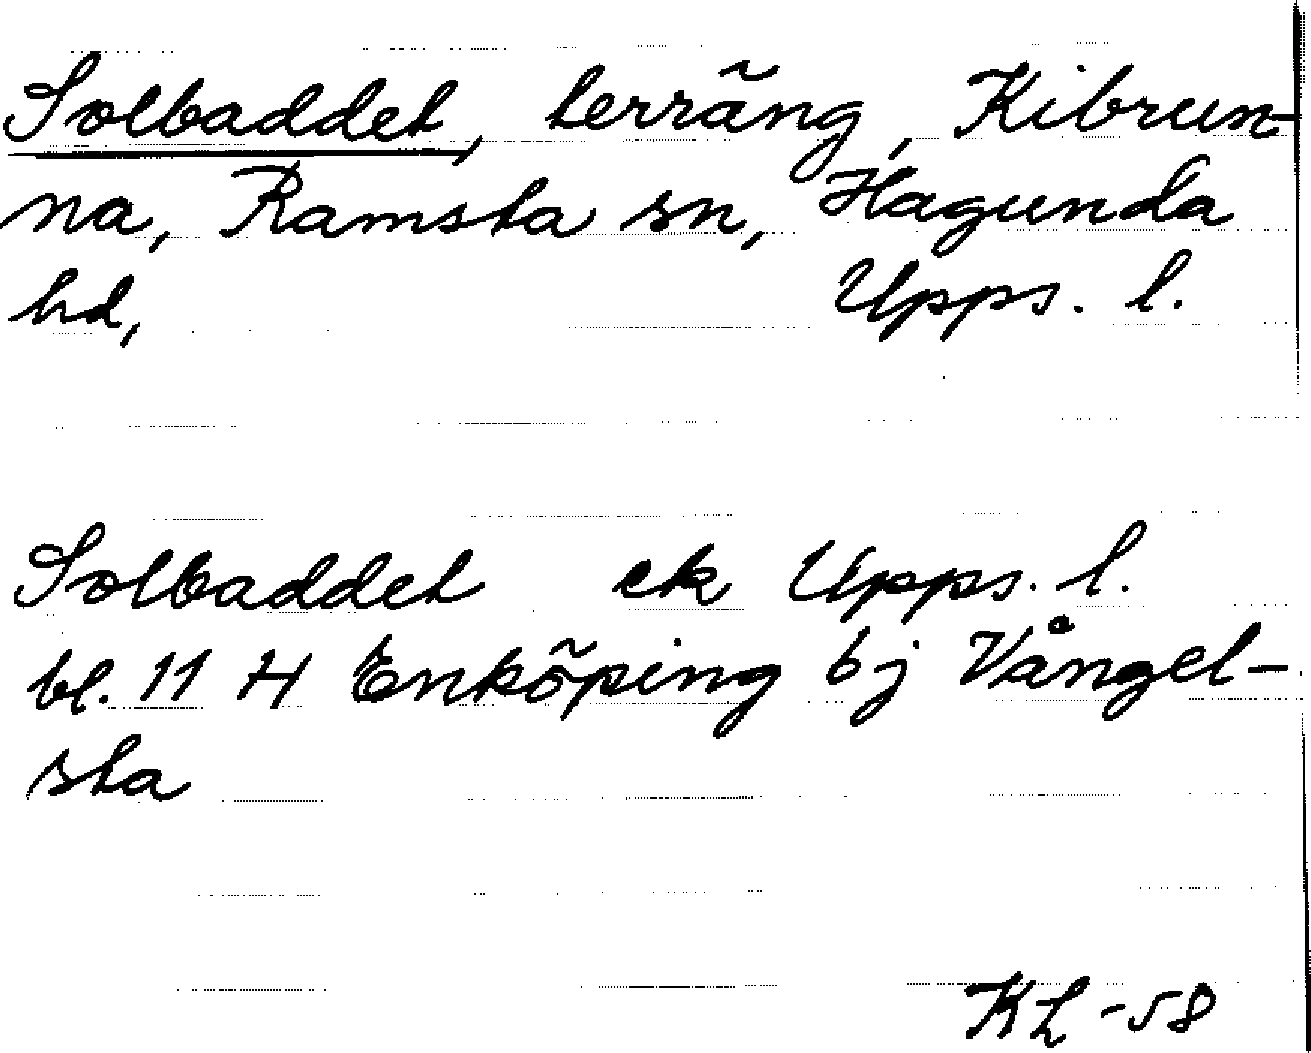 Solbaddet, terräng, Kibrun-
na, Ramsta sn, Hagunda
hd, Upps. l.
Solbaddet ek Upps. l.
bl. 11 H Enköping bj Vångel-
sta
KL -58